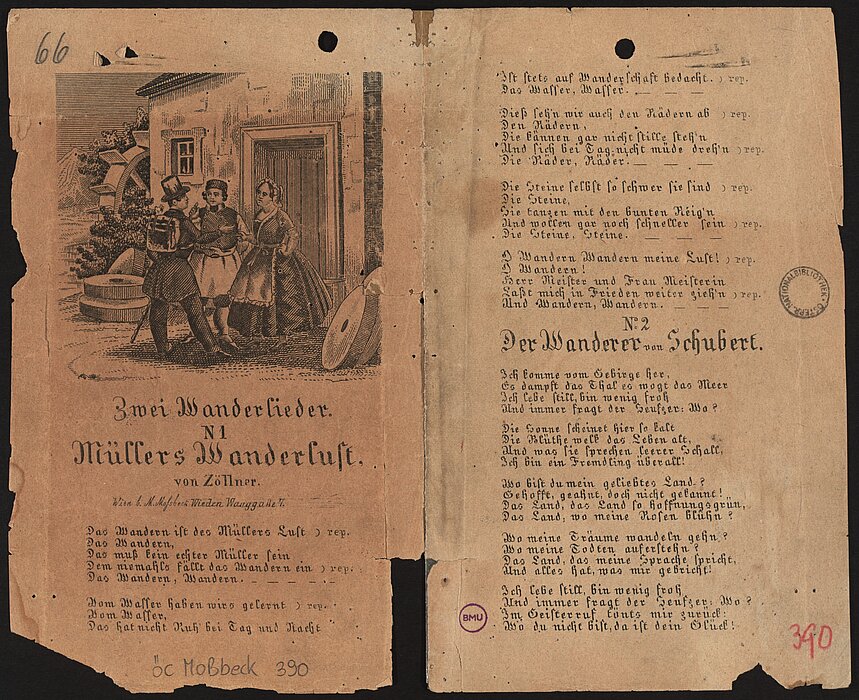 66
Zwei Wanderlieder.
N 1
Müllers Wanderlust,
von Zöllner.
Wien b. M. Moßbeck Wieden Waaggasse 7.
Das Wandern ist des Müllers Lust ) rep.
Das Wandern,
Das muß kein echter Müller sein
Dem niemahls fällt das Wandern ein ) rep.
Das Wandern, Wandern. _ _ _ _
Vom Wasser haben wirs gelernt ) rep.
Vom Wasser,
Das hat nicht Ruh bei Tag und Nacht
öC Moßbeck 390
Ist stets auf Wanderschaft bedacht. ) rep.
Das Wasser, Wasser. _ _ _
Dieß seh'n wir auch den Rädern ab ) rep.
Den Rädern,
Die können gar nicht stille steh'n
Und sich bei Tag nicht müde dreh'n ) rep.
Die Räder, Räder. _ _ _
Die Steine selbst so schwer sie sind ) rep.
Die Steine,
Sie tanzen mit den bunten Reig'n
Und wollen gar noch schneller sein ) rep.
Die Steine, Steine. _ _ _
O Wandern Wandern meine Lust! ) rep.
O Wandern!
Herr Meister und Frau Meisterin
Laßt mich in Frieden weiter zieh'n ) rep.
Und Wandern, Wandern. _ _ _
No 2
Der Wanderer von Schubert.
Ich komme vom Gebirge her,
Es dampft das Thal es wogt das Meer
Ich lebe still, bin wenig froh
Und immer fragt der Seufzer: Wo?
Die Sonne scheinet hier so kalt
Die Blüthe welk das Leben alt,
Und was sie sprechen leerer Schall,
Ich bin ein Fremdling überall!
Wo bist du mein geliebtes Land?
Gehofft, geahnt, doch nicht gekannt!
Das Land, das Land so hoffnungsgrün,
Das Land, wo meine Rosen blühn?
Wo meine Träume wandeln gehn?
Wo meine Todten auferstehn?
Das Land, das meine Sprache spricht,
Und alles hat, was mir gebricht!
Ich lebe still, bin wenig froh,
Und immer fragt der Seufzer: Wo?
Im Geisterruf tönts mir zurück:
Wo du nicht bist, da ist dein Glück!
ÖSTERR. NATIONALBIBLIOTHEK
BMU
390